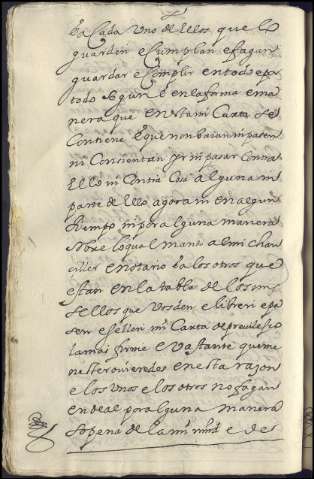 ea Cada Uno de Ellos, que lo
guarden e Cumplan e fagan
guardar e Complir en todo e por
todo segun e en la forma e ma
nera que en esta mi Carta se
Contiene e que non baian ni pasen
ni Consientan yr ni pasar Contra
Ello ni Contra Cosa alguna ni
parte de Ello, agora ni en algun
tiempo, ni por alguna manera
sobre lo qual mando al mi chan
ciller e notario ea los otros que
estan en la tabla de los mis
sellos que Vos den e libren e pa
sen e sellen mi Carta de previlexio
la mas firme e Vastante que me
nester ouieredes en esta razon
e los Unos e los otros no fagan
en deal por alguna manera
so pena de la mi mrd e de